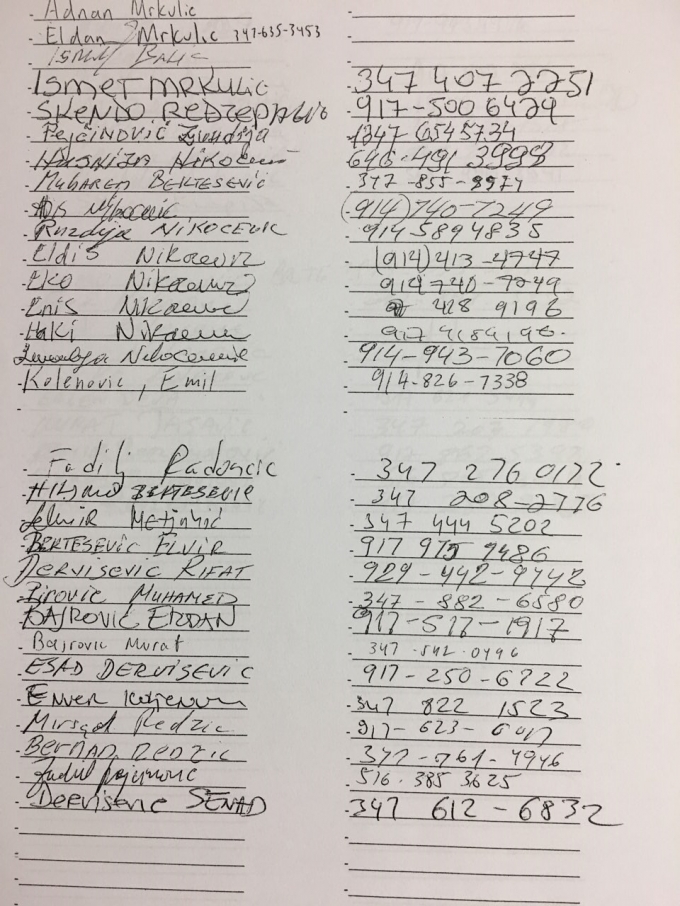 Adnan Mrkulic
Eldan Mrkulic 347-635-3453
Balic
ISMET MRKULIC 347 407 2251
SKENDO 917-500 6429
PEJČINOVIĆ 1347 6545734
HUSNIJA NIKOČEVIĆ 646-491 3998
Muharem BERTESEVIC 347-855-8974
(914) 740-7249
Ruzdija NIKOCEVIC 914 589 4835
Eldis Nikocevic (914) 413-4747
EKO Nikocevic 914 740-7249
Enis Nikocevic 428 9196
Haki Nikocevic 917 4289196
914-943-7060
Kolenovic, Emil 914-826-7338
Fadilj Radoncic 347 276 0172
BERTESEVIC 347 208-2776
347 444 5202
BERTESEVIC ELVIR 917 975 9486
DERVISEVIC RIFAT 929-442-9742
Birovic MUHAMED 347-882-6580
BAJROVIC ERDAN 917-517-1917
Bajrovic Murat 347-542-0496
ESAD DERVISEVIC 917-250-6722
Enver 347 822 1523
Mirsad Redzic 917-623-
REDZIC 377-761-4946
516-385 3625
Dervisevic SENAD 347 612-6832